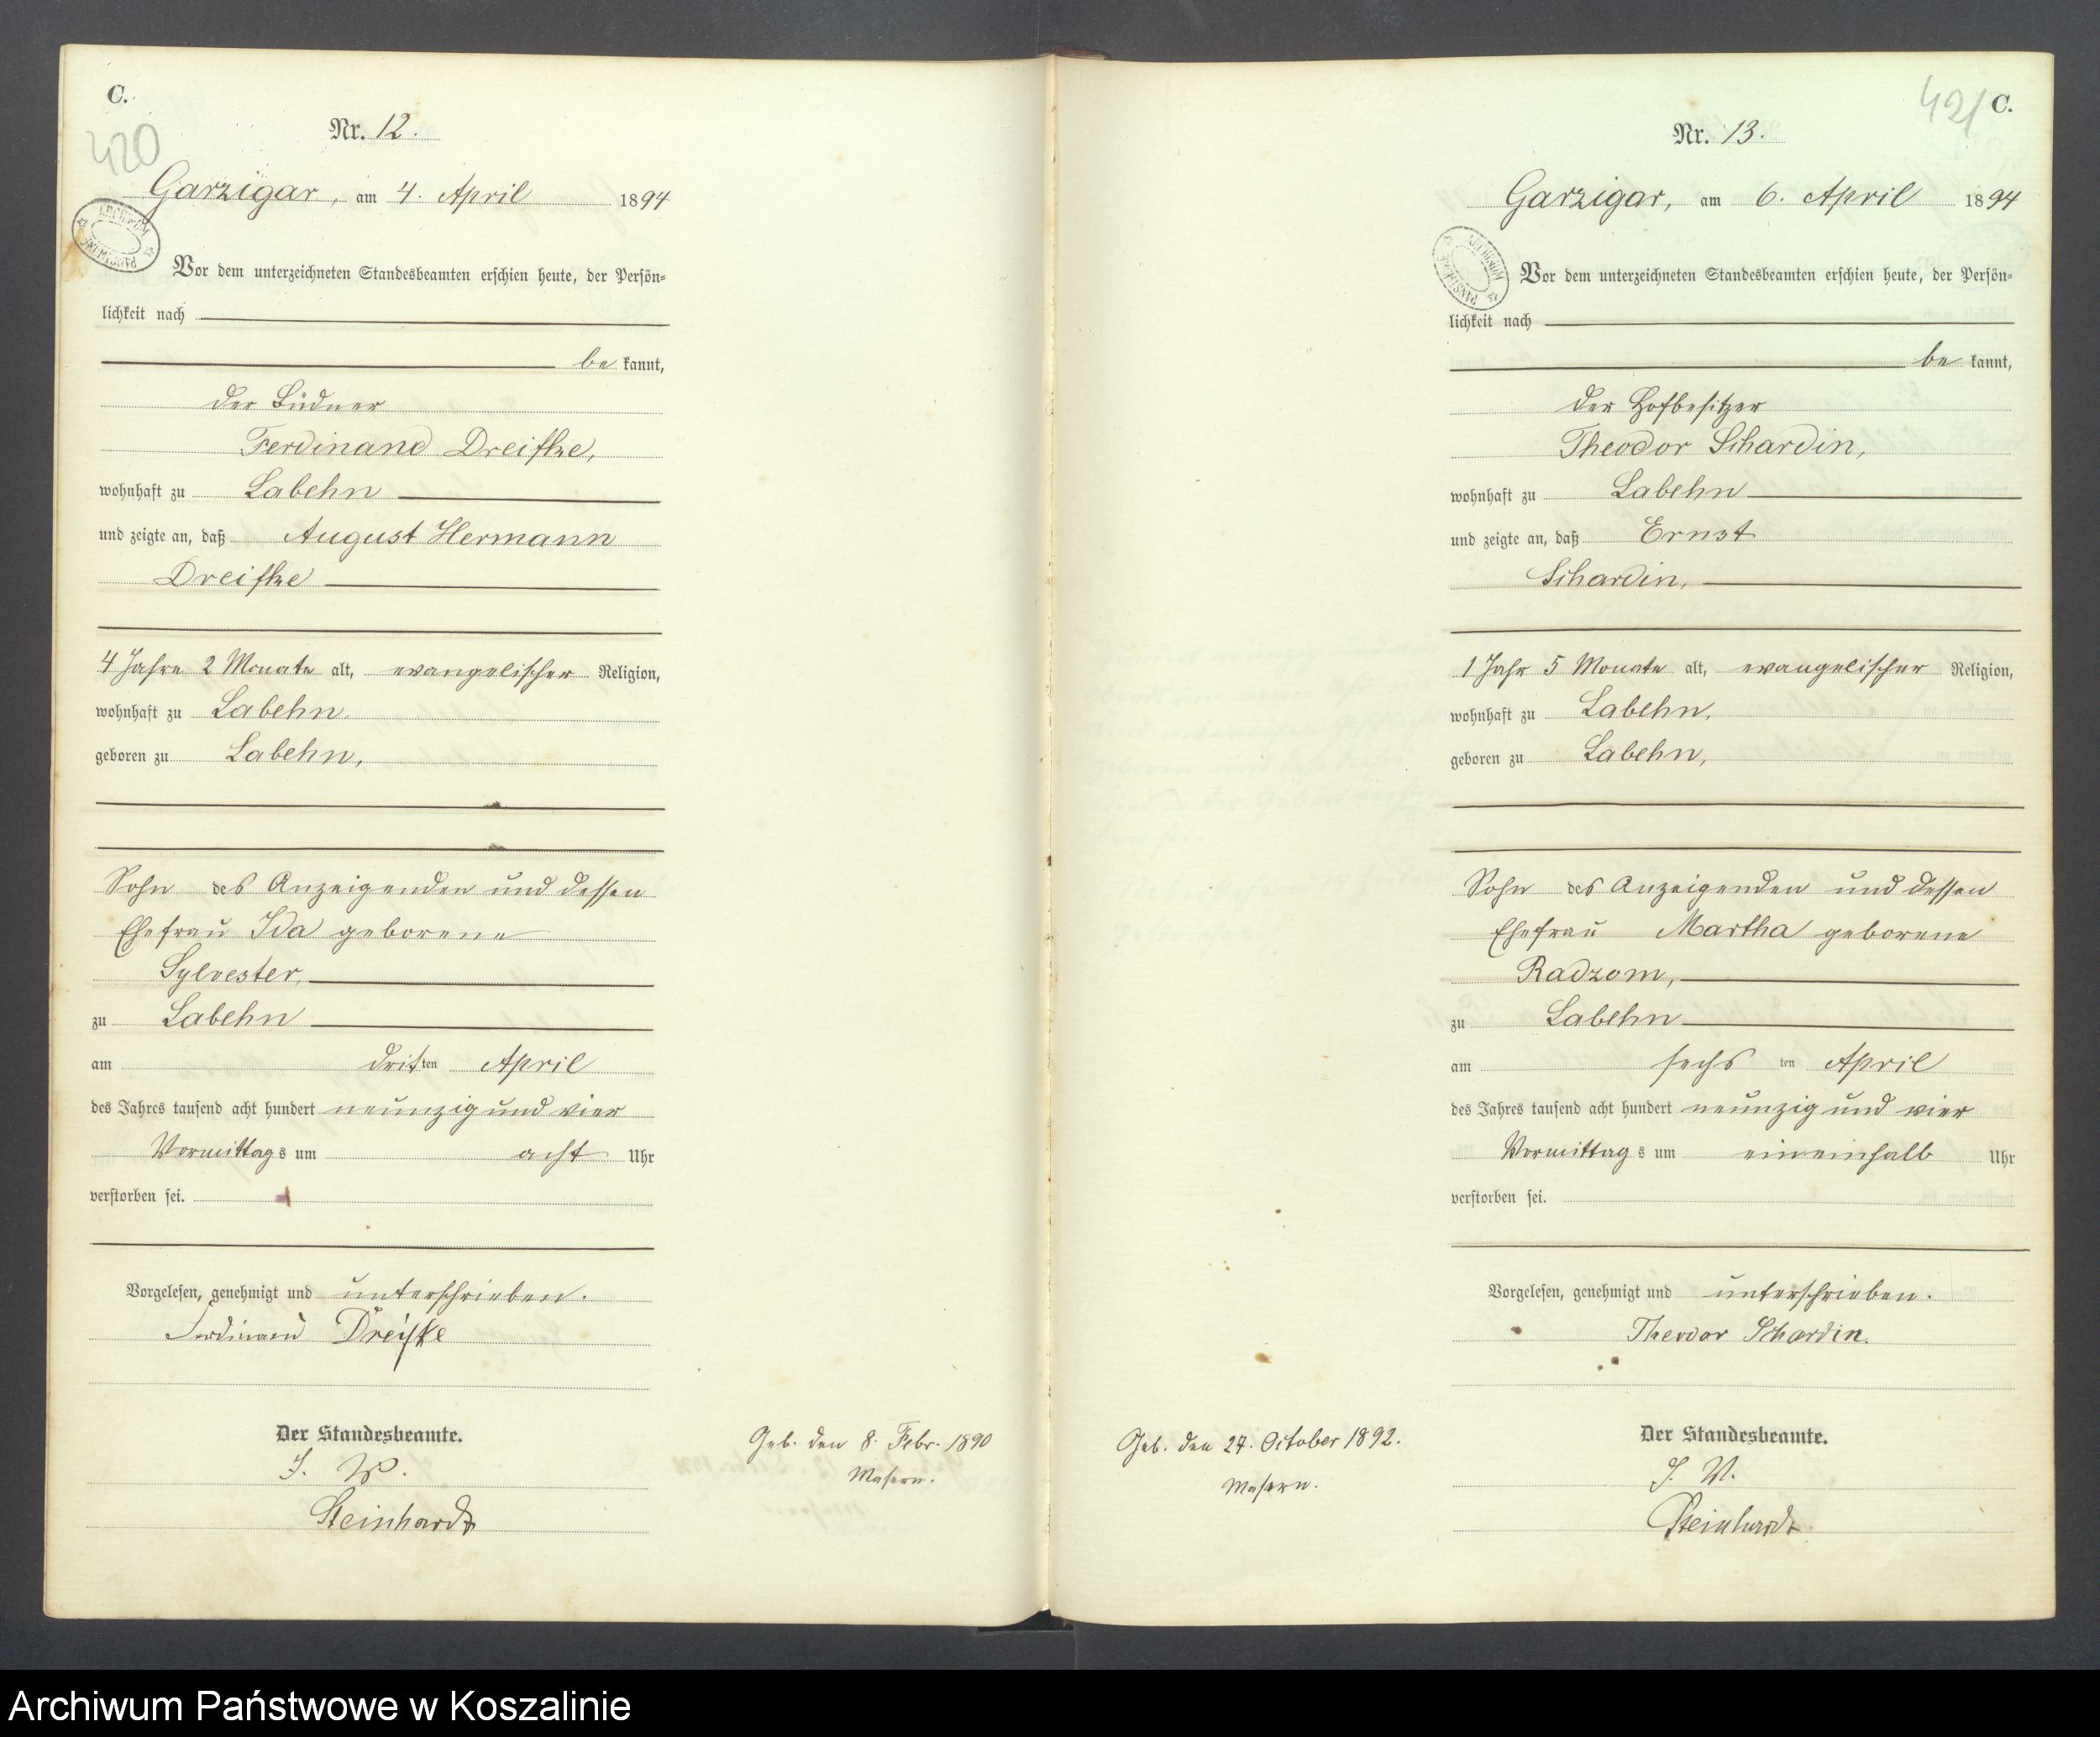 C.
420
Nr. 12.
Garzigar, am 4. April 1894
ARCHIWUM PAŃSTWOWE
Vor dem unterzeichneten Standesbeamten erschien heute, der Persön-
lichkeit nach
be kannt,
der Büdner
Ferdinand Dreifke,
wohnhaft zu Labehn
und zeigte an, daß August Hermann
Dreifke
4 Jahre 2 Monate alt, evangelischer Religion,
wohnhaft zu Labehn.
geboren zu Labehn,
Sohn des Anzeigenden und dessen
Ehefrau Ida geborene
Sylvester,
zu Labehn
am dritten April
des Jahres tausend acht hundert neunzig und vier
Vormittags um acht Uhr
verstorben sei.
Vorgelesen, genehmigt und unterschrieben.
Ferdinand Dreifke
Der Standesbeamte.
J. V.
Steinhardt
Geb. den 8. Febr. 1890
Masern.
421 C.
Nr. 13.
Garzigar, am 6. April 1894
ARCHIWUM PAŃSTWOWE
Vor dem unterzeichneten Standesbeamten erschien heute, der Persön-
lichkeit nach
be kannt,
der Hofbesitzer
Theodor Schardin,
wohnhaft zu Labehn
und zeigte an, daß Ernst
Schardin,
1 Jahr 5 Monate alt, evangelischer Religion,
wohnhaft zu Labehn,
geboren zu Labehn,
Sohn des Anzeigenden und dessen
Ehefrau Martha geborene
Radzom,
zu Labehn
am sechs ten April
des Jahres tausend acht hundert neunzig und vier
Vormittags um eineinhalb Uhr
verstorben sei.
Vorgelesen, genehmigt und unterschrieben.
Theodor Schardin.
Der Standesbeamte.
J. V.
Steinhardt
Geb. den 27. October 1892.
Masern.
Archiwum Państwowe w Koszalinie